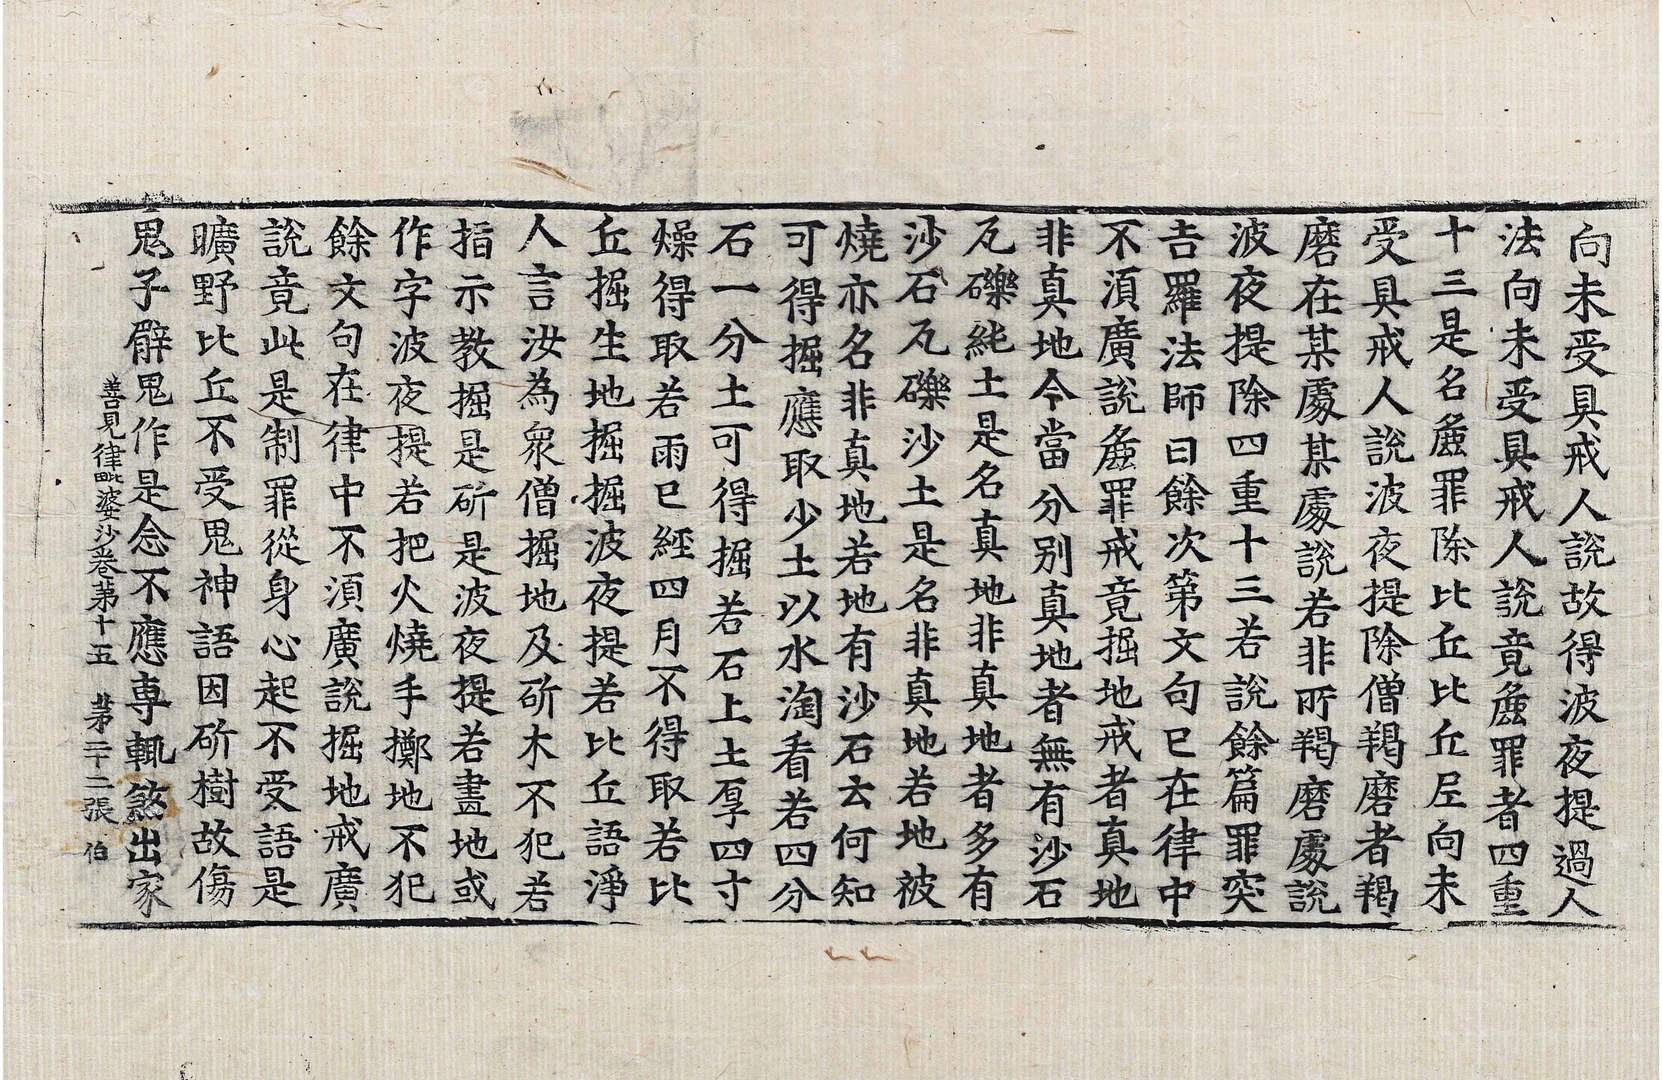 向未受具戒人說故得波夜提過人
法向未受具戒人說竟麁罪者四重
十三是名麁罪除比丘比丘尼向未
受具戒人說波夜提除僧羯磨者羯
磨在某處某處說若非所羯磨處說
波夜提除四重十三若說餘篇罪突
吉羅法師曰餘次第文句已在律中
不湏廣說麁罪戒竟掘地戒者真地
非真地今當分別真地者無有沙石
瓦礫純土是名真地非真地者多有
沙石瓦礫沙土是名非真地若地被
燒亦名非真地若地有沙石云何知
可得掘應取少土以水淘看若四分
石一分土可得掘若石上土厚四寸
燥得取若雨已經四月不得取若比
丘掘生地掘掘波夜提若比丘語淨
人言汝為衆僧掘地及斫木不犯若
指示教掘是斫是波夜提若畫地或
作字波夜提若把火燒手擲地不犯
餘文句在律中不湏廣說掘地戒廣
說竟此是制罪從身心起不受語是
曠野比丘不受鬼神語因斫樹故傷
鬼子臂鬼作是念不應專輒煞出家
善見律毗婆沙卷第十五 第二十二張 伯